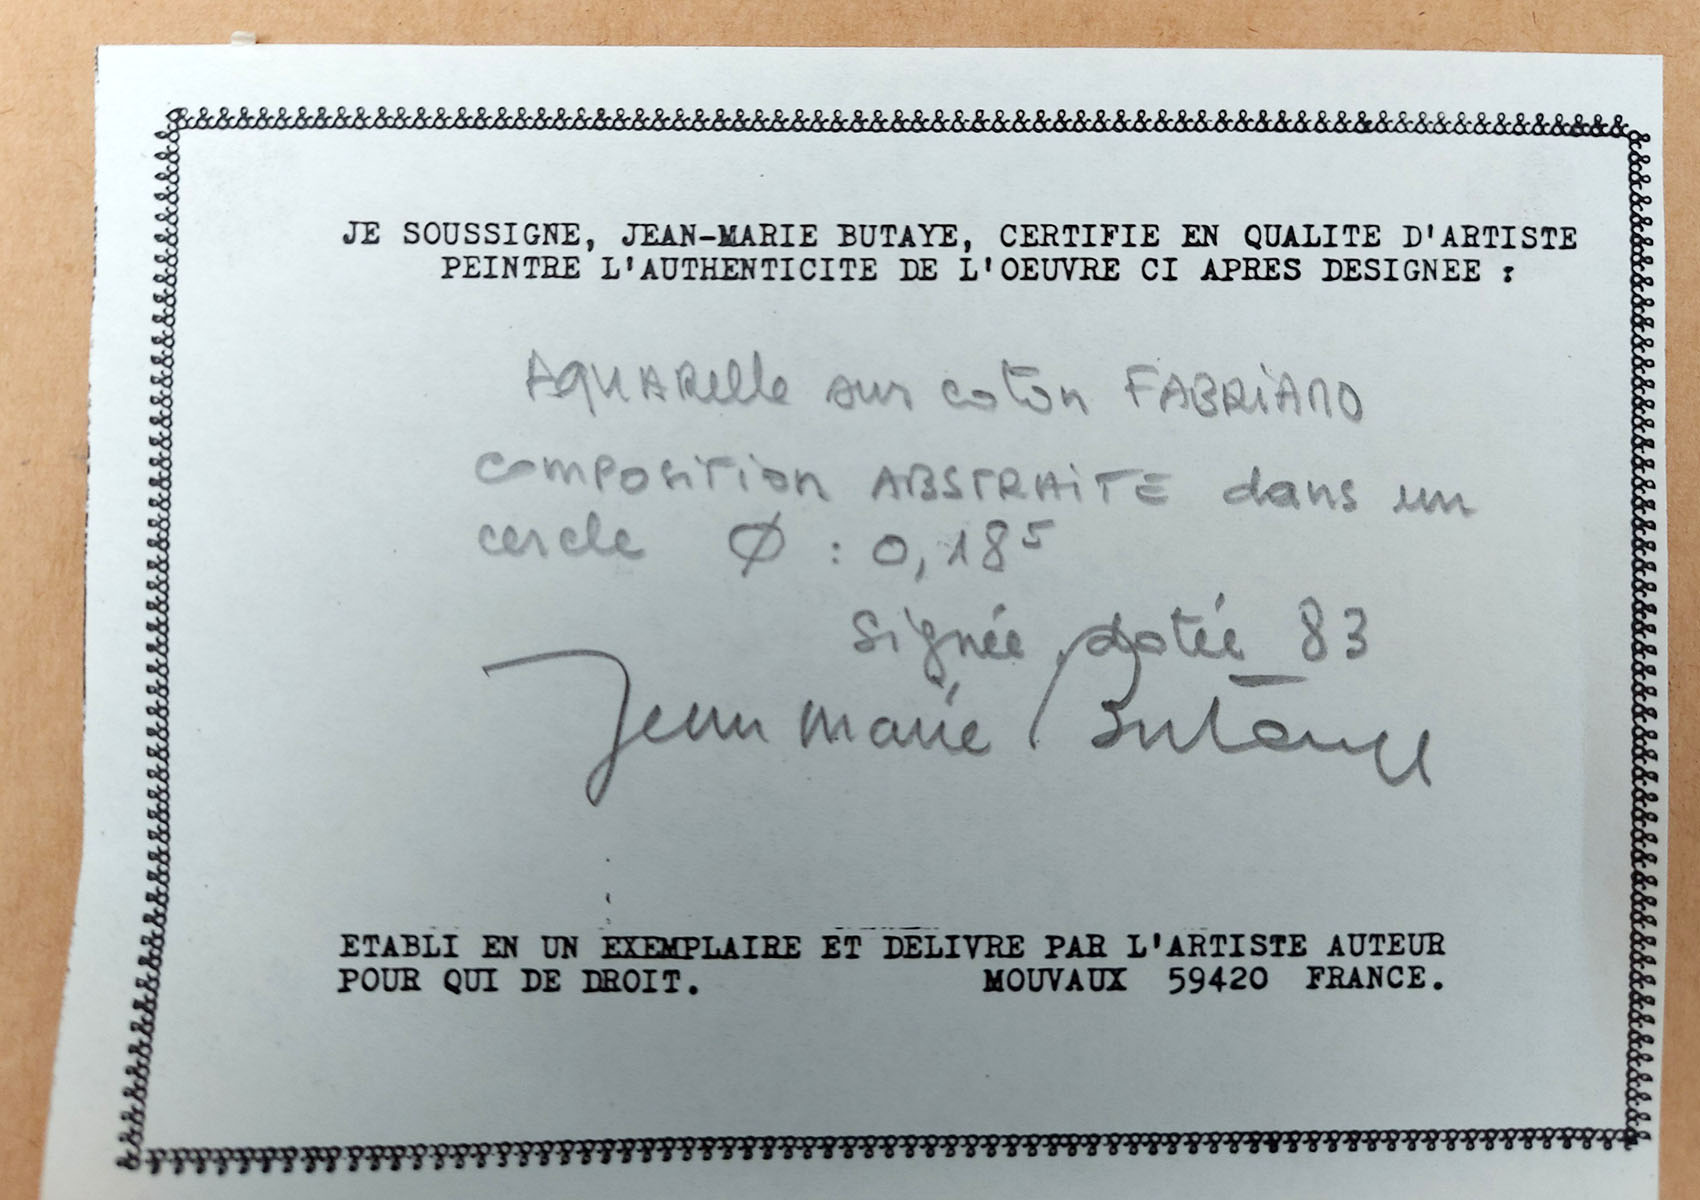 JE SOUSSIGNE, JEAN-MARIE BUTAYE, CERTIFIE EN QUALITE D'ARTISTE
PEINTRE L'AUTHENTICITE DE L'OEUVRE CI APRES DESIGNEE :
AQUARelle sur coton FABRiANO
composition ABSTRAiTE dans un
cercle Ø : 0,18⁵
signée datée 83
Jean marie Butaye
ETABLI EN UN EXEMPLAIRE ET DELIVRE PAR L'ARTISTE AUTEUR
POUR QUI DE DROIT. MOUVAUX 59420 FRANCE.